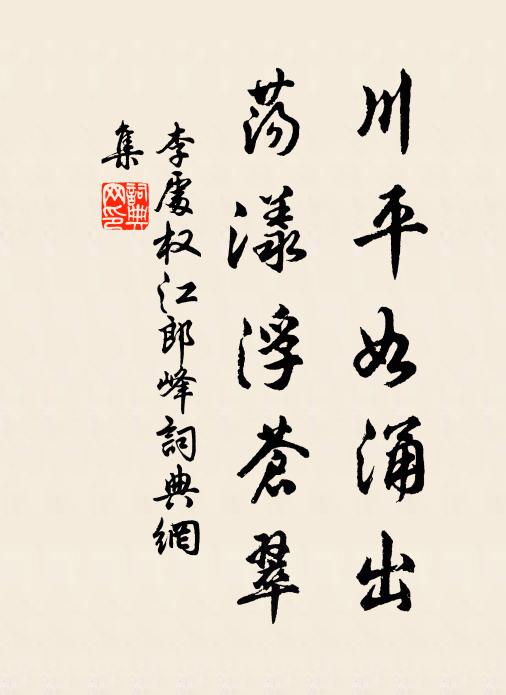 川平如涌出
荡漾浮蒼翠
李處权江郎峰詞典網
集
詞典网印